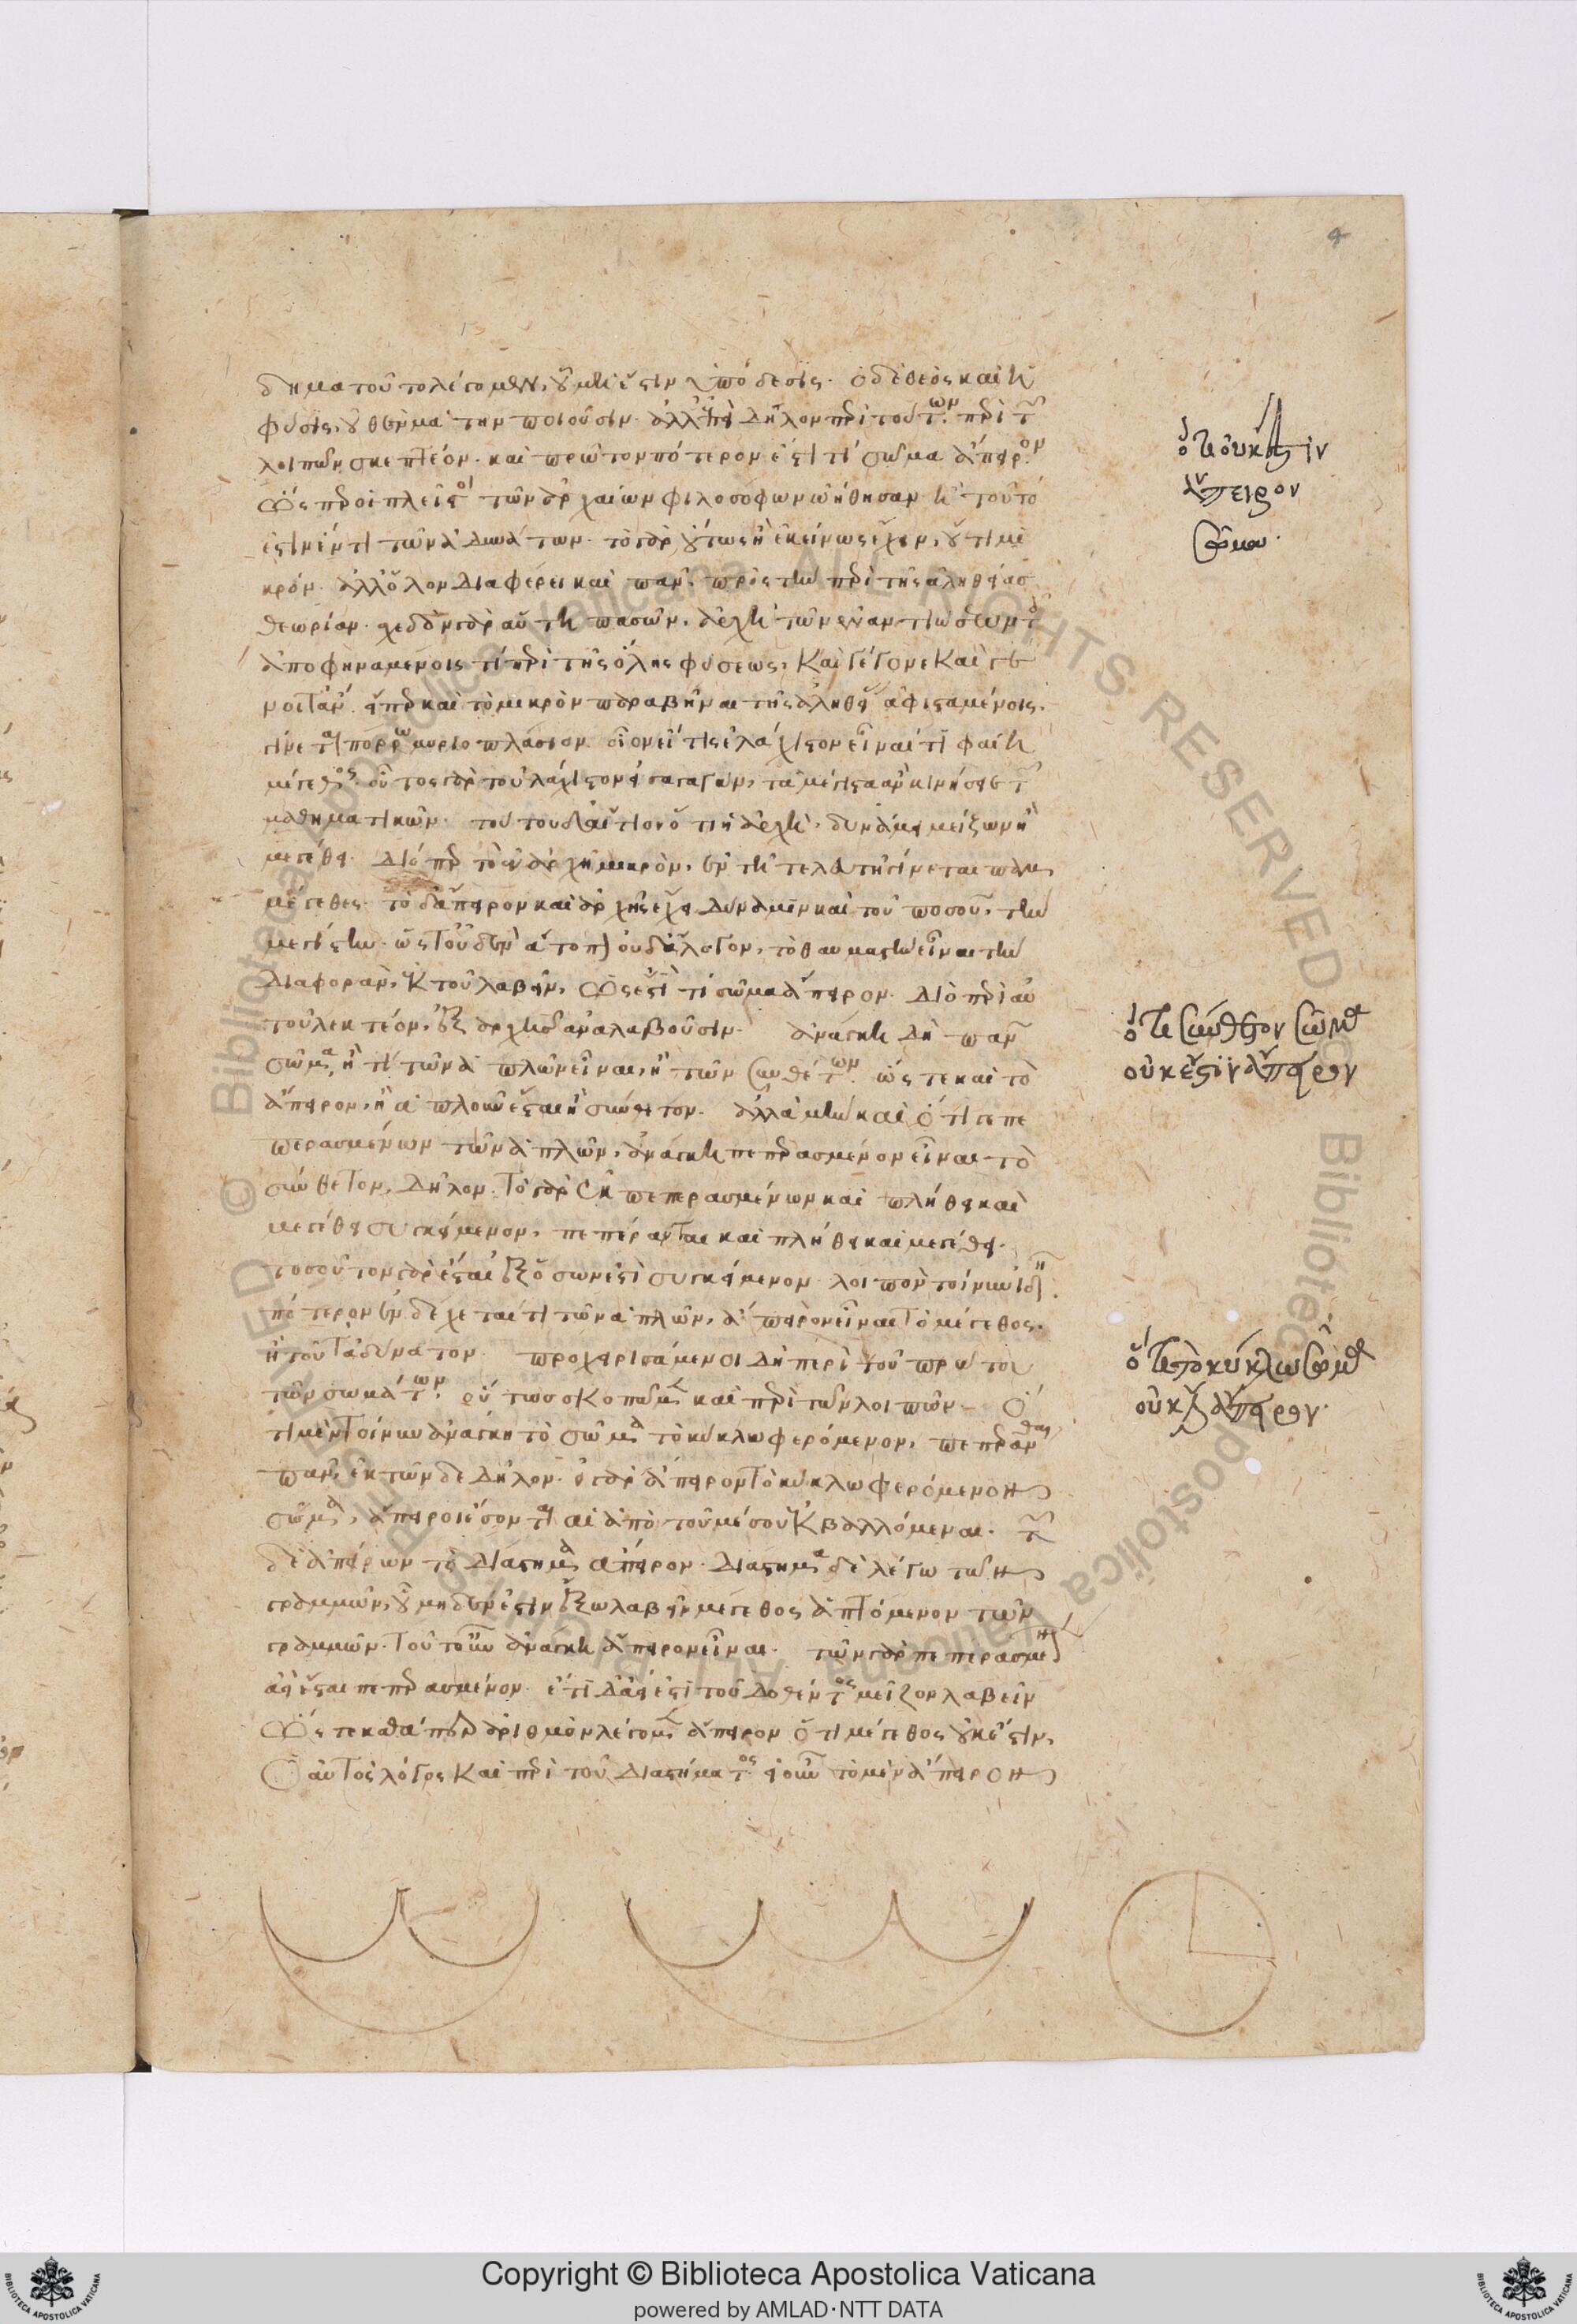 4
δημα τοῦτο λέγομεν, οὗ μή ἐστιν ὑπόδεσις. ὁ δὲ θεὸς καὶ ἡ
φύσις, οὐθὲν μάτην ποιοῦσιν. ἀλλ' ἐπεὶ δῆλον περὶ τούτων. περὶ τῶν
λοιπῶν σκεπτέον. καὶ πρῶτον πότερον ἐστί τι σῶμα ἄπειρον
ὥσπερ οἱ πλεῖστοι τῶν ἀρχαίων φιλοσόφων ὠήθησαν ἢ τοῦτό
ἐστιν ἕν τι τῶν ἀδυνάτων. τὸ γὰρ οὕτως ἢ ἐκείνως ἔχειν, οὔ τι μι
κρόν. ἀλλ' ὅλον διαφέρει καὶ πᾶν. πρὸς τὴν περὶ τῆς ἀληθείας
θεωρίαν. σχεδὸν γὰρ αὕτη πασῶν, ἀρχὴ τῶν ἐναντιώσεων τοῖς
ἀποφηναμένοις τί περὶ τῆς ὅλης φύσεως, καὶ γέγονε καὶ γέ
νοιτ' ἄν. εἴπερ καὶ τὸ μικρὸν παραβῆναι τῆς ἀληθείας ἀφισταμένοις.
γίνεται πόρρω μυριοπλάσιον. οἷον εἴ τις ἐλάχιστον εἶναί τι φαίη
μέγεθος. οὗτος γὰρ τοὐλάχιστον εἰσαγαγών, τὰ μέγιστα ἂν κινήσειε τῶν
μαθηματικῶν. τούτου δ' αἴτιον ὅτι ἡ ἀρχὴ, δυνάμει μείζων ἢ
μεγέθει. διόπερ τὸ ἐν ἀρχῇ μικρὸν, ἐν τῇ τελευτῇ γίνεται παμ
μέγεθες. τὸ δ' ἄπειρον καὶ ἀρχῆς ἔχει δύναμιν καὶ τοῦ ποσοῦ, τὴν
μεγίστην. ὥστ' οὐδὲν ἄτοπον οὐδ' ἄλογον, τὸ θαυμαστὴν εἶναι τὴν
διαφορὰν, ἐκ τοῦ λαβεῖν, ὡς ἐστί τι σῶμα ἄπειρον. διὸ περὶ αὐ
τοῦ λεκτέον, ἐξ ἀρχῆς ἀναλαβοῦσιν. ἀνάγκη δὴ πᾶν
σῶμα, ἤ τι τῶν ἁπλῶν εἶναι, ἢ τῶν συνθέτων. ὥστε καὶ τὸ
ἄπειρον, ἢ ἁπλοῦν ἔσται ἢ σύνθετον. ἀλλὰ μὴν καὶ ὅτι γε πε
περασμένων τῶν ἁπλῶν, ἀνάγκη πεπερασμένον εἶναι τὸ
σύνθετον, δῆλον. τὸ γὰρ ἐκ πεπερασμένων καὶ πλήθει καὶ
μεγέθει συγκείμενον, πεπέρανται καὶ πλήθει καὶ μεγέθει.
τοσοῦτον γάρ ἐσται ἐξ ὅσων ἐστὶ συγκείμενον. λοιπὸν τοίνυν ἰδεῖν.
πότερον ἐνδέχεταί τι τῶν ἁπλῶν, ἄπειρον εἶναι τὸ μέγεθος.
ἢ τοῦτ' ἀδύνατον. προχειρισάμενοι δὴ περὶ τοῦ πρώτου
τῶν σωμάτων. οὕτως σκοπῶμεν καὶ περὶ τῶν λοιπῶν – Ὅ
τι μὲν τοίνυν ἀνάγκη τὸ σῶμα τὸ κύκλω φερόμενον, πεπεράνθαι
πᾶν, ἐκ τῶνδε δῆλον. εἰ γὰρ ἄπειρον τὸ κύκλω φερόμενον
σῶμα, ἄπειροι ἔσονται αἱ ἀπὸ τοῦ μέσου ἐκβαλλόμεναι. τῶν
δὲ ἀπείρων τὸ διάστημα ἄπειρον. διάστημα δὲ λέγω τῶν
γραμμῶν, οὗ μηδὲν ἐστὶν ἔξω λαβεῖν μέγεθος ἁπτόμενον τῶν
γραμμῶν. τοῦτ' οὖν ἀνάγκη ἄπειρον εἶναι. τῶν γὰρ πεπερασμένων
ἀεὶ ἔσται πεπερασμένον. ἔτι δ' ἀεί ἐστι τοῦ δοθέντος μεῖζον λαβεῖν
ὥστε καθάπερ ἀριθμὸν λέγομεν ἄπειρον ὅτι μέγεθος οὐκ ἔστιν,
Ὁ αὐτὸς λόγος καὶ περὶ τοῦ διαστήματος. εἰ οὖν τὸ μὲν ἄπειρον
ὅτι οὐκ ἔστιν
ἄπειρον
σῶμα.
ὅτι σύνθετον σῶμα
οὐκ ἔστιν ἄπειρον
ὅτι τὸ κύκλω σῶμα
οὐκ ἔστιν ἄπειρον.
© Biblioteca Apostolica Vaticana ALL RIGHTS RESERVED
Copyright © Biblioteca Apostolica Vaticana
powered by AMLAD·NTT DATA
BIBLIOTECA APOSTOLICA VATICANA
BIBLIOTECA APOSTOLICA VATICANA